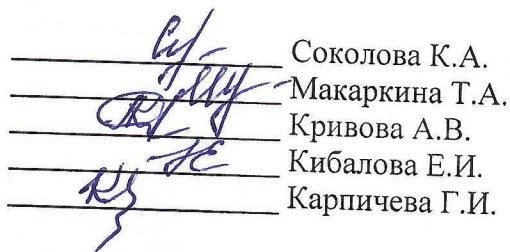 Соколова К.А.
Макаркина Т.А.
Кривова А.В.
Кибалова Е.И.
Карпичева Г.И.